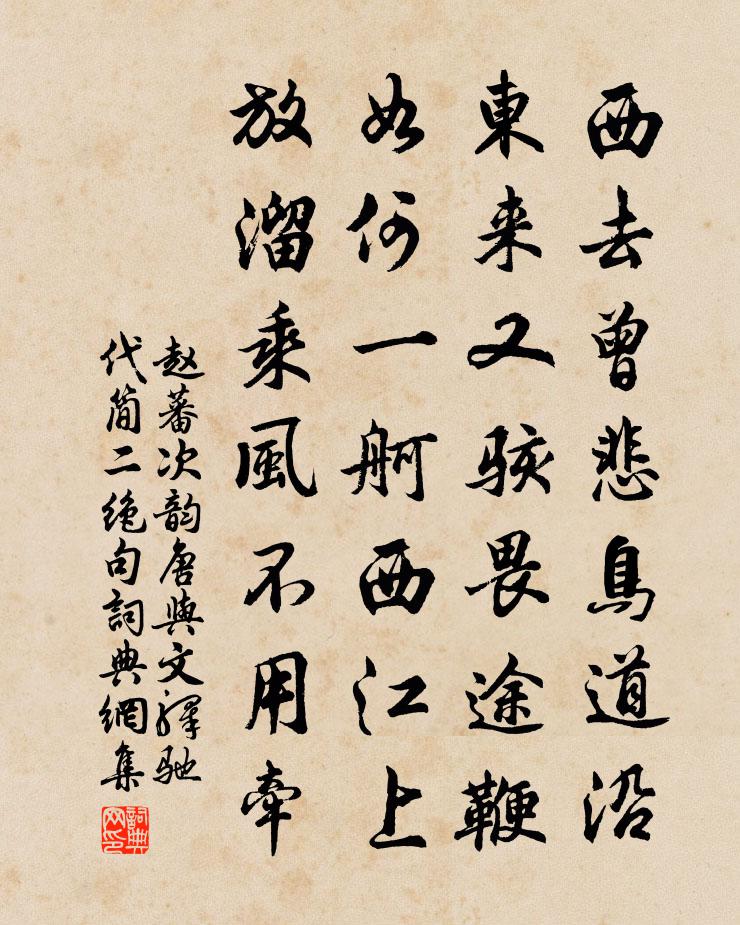 西去曾悲鳥道沿
東来又駭畏途鞭
如何一舸西江上
放溜乘風不用牽
赵蕃次韵唐與文驛馳
代简二絶句詞典網集
詞典网印